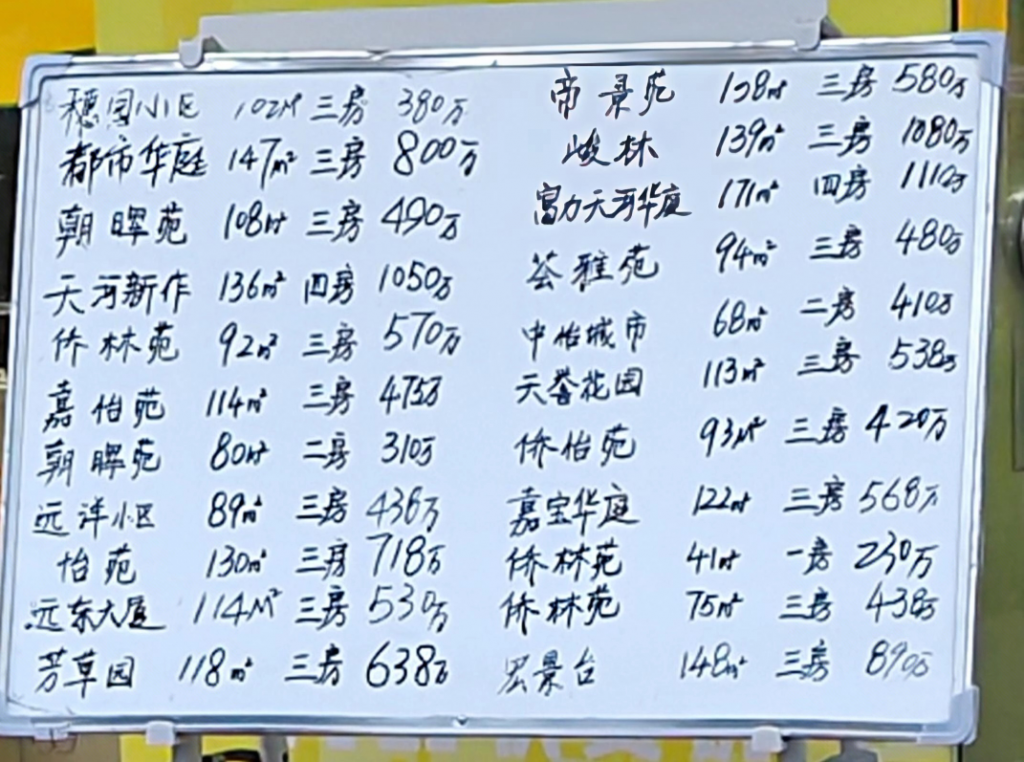 穗园小区 102M² 三房 380万
都市华庭 147m² 三房 800万
朝晖苑 108m² 三房 490万
天河新作 136m² 四房 1050万
侨林苑 92m² 三房 570万
嘉怡苑 114m² 三房 475万
朝晖苑 80m² 二房 310万
远洋小区 89m² 三房 436万
怡苑 130m² 三房 718万
远东大厦 114M² 三房 530万
芳草园 118m² 三房 638万
帝景苑 138m² 三房 580万
峻林 139m² 三房 1080万
富力天河华庭 171m² 四房 1110万
荟雅苑 94m² 三房 480万
中怡城市 68m² 二房 410万
天誉花园 113m² 三房 538万
侨怡苑 93M² 三房 420万
嘉宝华庭 122m² 三房 568万
侨林苑 41m² 一房 230万
侨林苑 75m² 三房 438万
宏景台 148m² 三房 890万